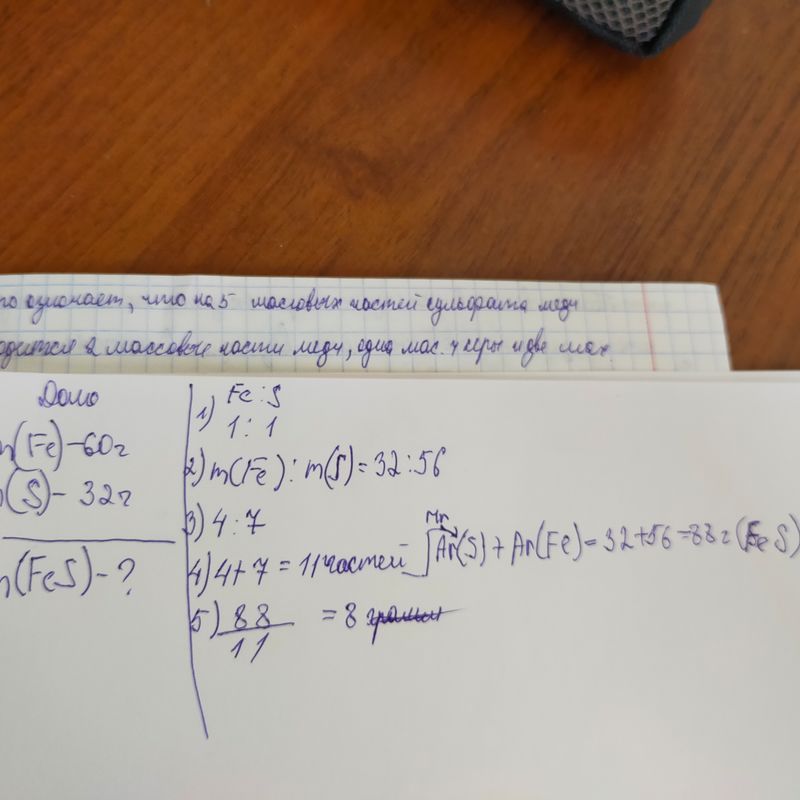 то означает, что на 5 массовых частей сульфата меди
одится 2 массовые части меди, одна мас. ч серы и две мас
Дано
m(Fe)-60г
m(S)- 32г
m(FeS)-?
1) Fe:S
1:1
2) m(Fe): m(S)=32:56
3) 4:7
4) 4+7=11 частей
Mr
Ar(S)+Ar(Fe)=32+56=88г (FeS)
5) 88
11
=8